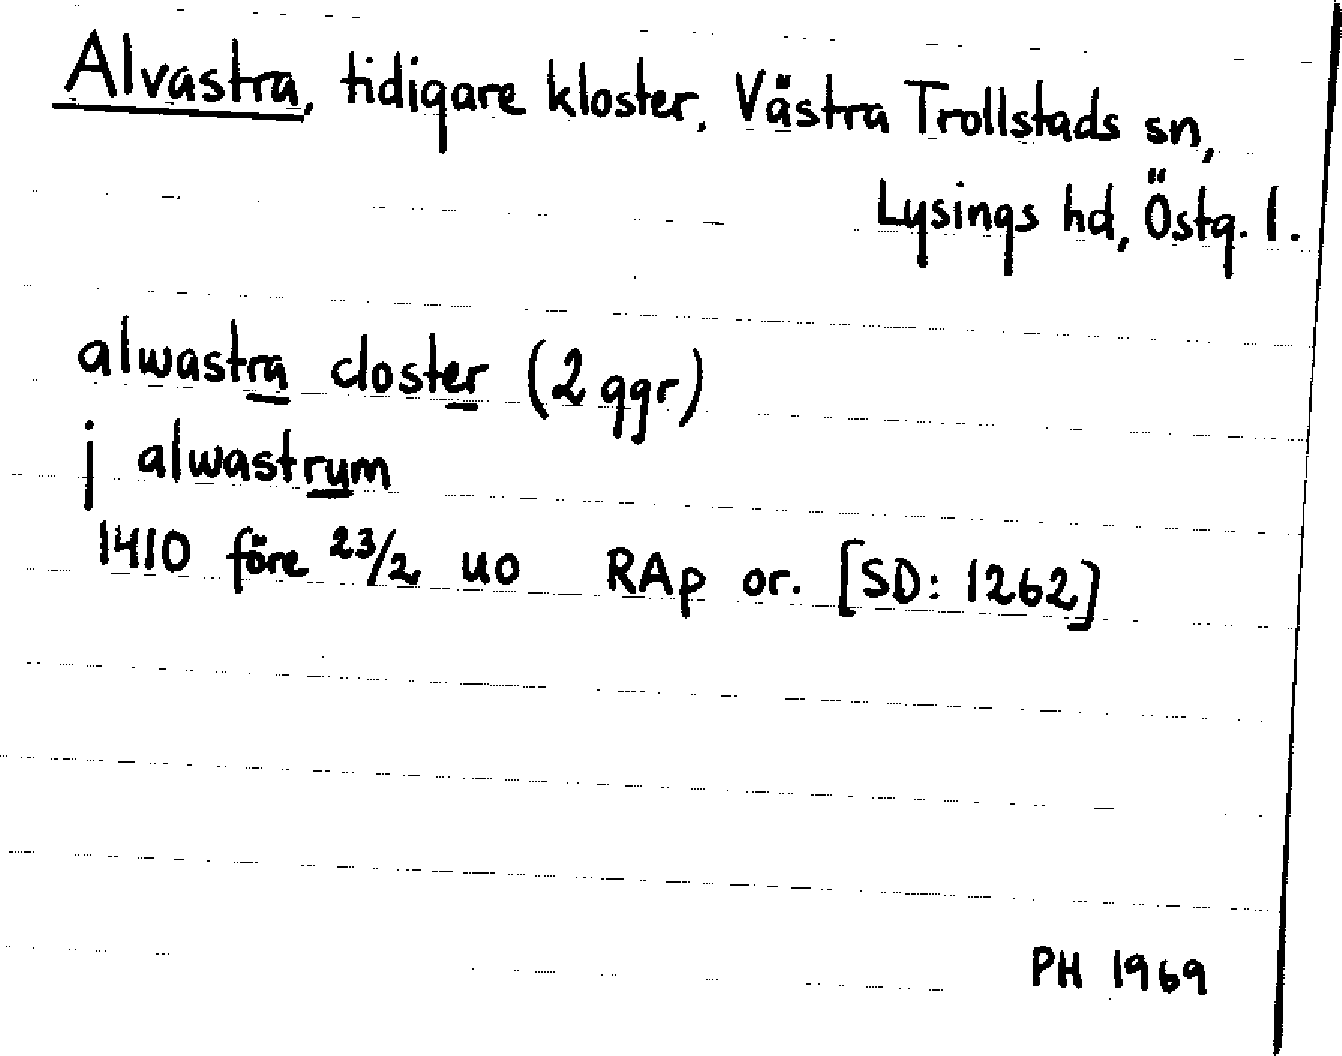 Alvastra, tidigare kloster, Västra Trollstads sn,
Lysings hd, Östg. l.
alwastra closter (2 ggr)
j alwastrum
1410 före 23/2 uo RAp or. [SD: 1262]
PH 1969